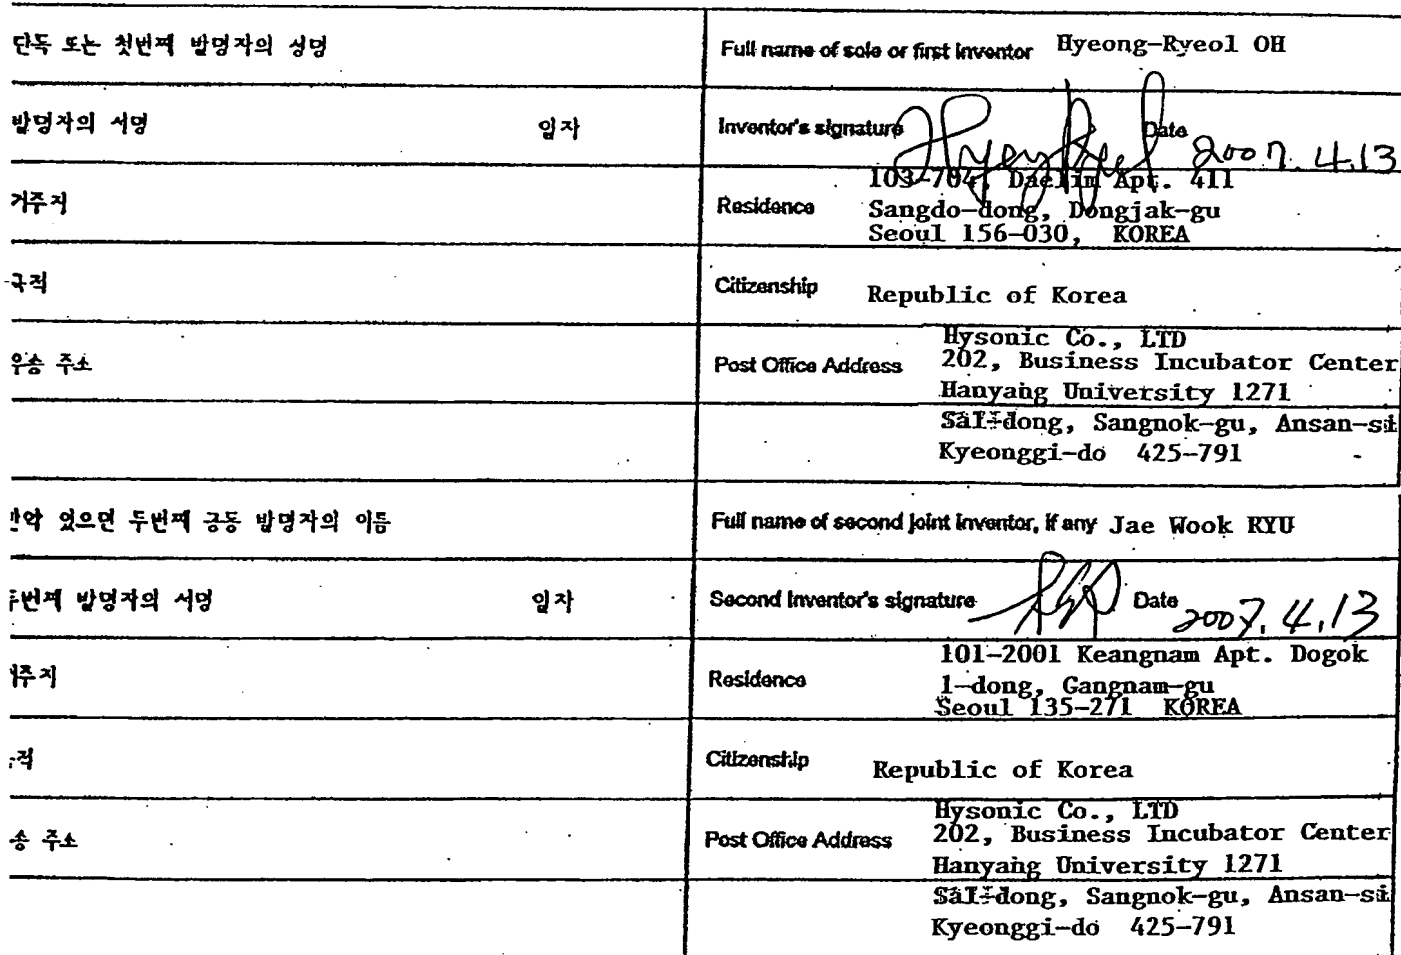 단독 또는 첫번째 발명자의 성명
Full name of sole or first inventor Hyeong-Ryeol OH
발명자의 서명 일자
Inventor's signature Hyeong Ryeol Date 2007. 4.13
거주지
Residence 103-704, Daelim Apt. 411
Sangdo-dong, Dongjak-gu
Seoul 156-030, KOREA
국적
Citizenship Republic of Korea
우송 주소
Post Office Address Hysonic Co., LTD
202, Business Incubator Center
Hanyang University 1271
Sa1-dong, Sangnok-gu, Ansan-si
Kyeonggi-do 425-791
만약 있으면 두번째 공동 발명자의 이름
Full name of second joint inventor, if any Jae Wook RYU
두번째 발명자의 서명 일자
Second Inventor's signature Date 2007. 4.13
거주지
Residence 101-2001 Keangnam Apt. Dogok
1-dong, Gangnam-gu
Seoul 135-271 KOREA
국적
Citizenship Republic of Korea
우송 주소
Post Office Address Hysonic Co., LTD
202, Business Incubator Center
Hanyang University 1271
Sa1-dong, Sangnok-gu, Ansan-si
Kyeonggi-do 425-791